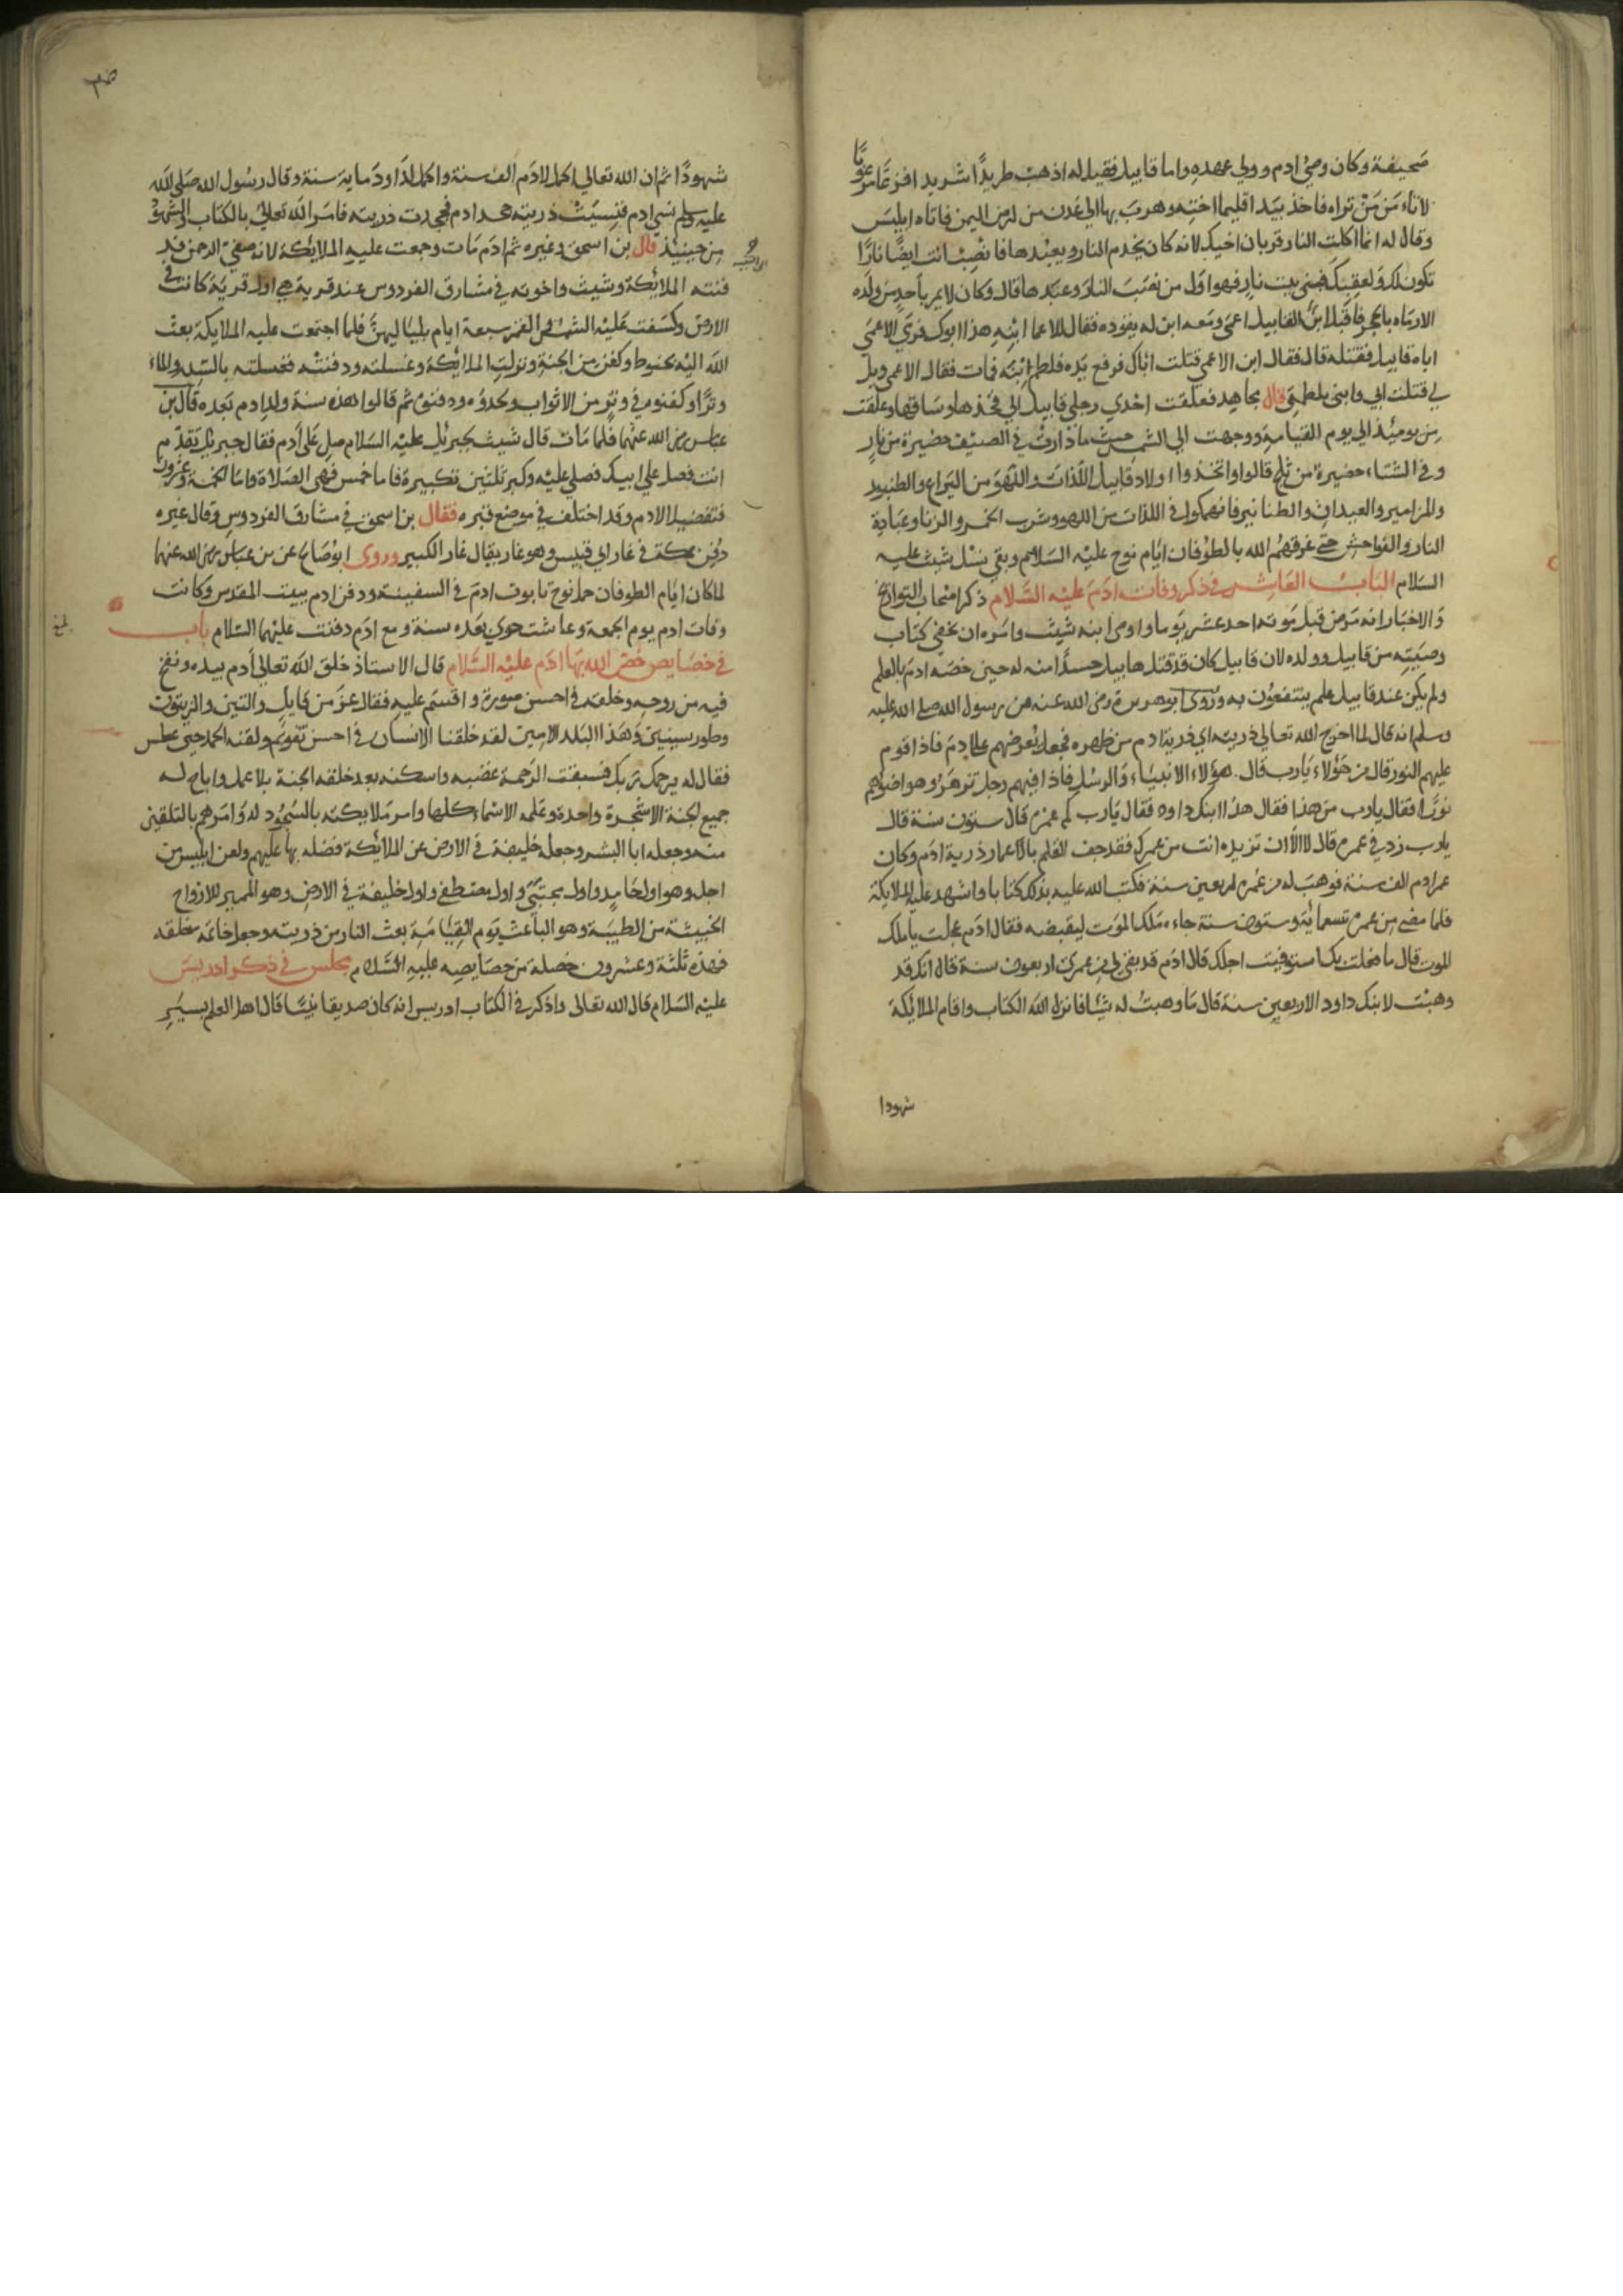 صحيفة وكان وصي ادم وولي عهده واما قابيل فقيل له اذهب طريدا شريدا فزعا مرعوبا
لا تامن من تراه فاخذ بيد اقليما اخته وهرب بها الي عدن من ارض اليمن فاتاه ابليس
وقال له انما اكلت النار قربان اخيك لانه كان يخدم النار ويعبدها فانصب انت ايضا نارا
تكون لك ولعقبك فبنى بيت نار فهو اول من نصب النار وعبدها قال وكان لا يمر به احد من ولده
الا رماه بالحجر فاقبل ابن لقابيل اعمى ومعه ابن له يقوده فقال للاعما ابنه هذا ابوك فرمي الاعمي
اباه قابيل فقتله قال فقال ابن الاعمي قتلت اباك فرفع يده فلطم ابنه فمات فقال الاعمي ويل
لي قتلت ابي وابني بلطمتي قال مجاهد فعلقت احدي رجلي قابيل الي فخذها وساقها وعلقت
من يومئذ الي يوم القيامة ووجهت الي الشمس حيث ما دارت في الصيف حضيرة من نار
وفي الشتاء حضيرة من ثلج قالوا واتخذوا اولاد قابيل اللذات واللهو من اليراع والطنبور
والمزامير والعيدان والطنابير فانهمكوا في اللذات من اللهو وشرب الخمر والزنا وعبادة
النار والفواحش حتي غرقهم الله بالطوفان ايام نوح عليه السلام وبقي نسل شيث عليه
السلام الباب العاشر في ذكر وفات ادم عليه السلام ذكر اصحاب التواريخ
والاخبار انه مرض قبل موته احد عشر يوما واوصى ابنه شيث وامره ان يخفي كتاب
وصيته من قابيل وولده لان قابيل كان قد قتل هابيل حسدا منه له حين خصه ادم بالعلم
ولم يكن عند قابيل علم ينتفعون به وروي ابو هريرة رضي الله عنه عن رسول الله صلى الله عليه
وسلم انه قال لما اخرج الله تعالي ذريته اي ذرية ادم من ظهره فجعل يعرضهم على ادم فاذا قوم
عليهم النور قال من هؤلاء يا رب قال هؤلاء الانبياء والرسل فاذا فيهم رجل تزهر وهو اضوئهم
نورا فقال يا رب من هذا فقال هذا ابنك داود فقال يا رب كم عمره قال ستون سنة قال
يا رب زد في عمره قال لا الا ان تزيده انت من عمرك فقد جف القلم بالاعمار ذرية ادم وكان
عمر ادم الف سنة فوهب له من عمره اربعين سنة فكتب الله عليه بذلك كتابا واشهد عليه الملايكة
فلما مضى من عمره تسعمائة وستون سنة جاءه ملك الموت ليقبضه فقال ادم عجلت يا ملك
الموت قال ما فعلت بك استوفيت اجلك قال ادم قد بقى لي من عمري اربعون سنة قال انك قد
وهبت لابنك داود الاربعين سنة قال ما وهبت له شيئا فانزل الله الكتاب واقام الملايكة
شهودا
شهودا ثم ان الله تعالي اكمل لادم الف سنة واكمل لداود ماية سنة وقال رسول الله صلى الله
عليه وسلم نسي ادم فنسيت ذريته جحد ادم فجحدت ذريته فامر الله تعالى بالكتاب والشهود
من حينئذ قال بن اسحق وغيره ثم ادم مات وجمعت عليه الملايكة لانه صفي الرحمن
فدفنته الملائكة وشيث واخوته في مشارق الفردوس عند قرية هي اول قرية كانت في
الارض وكسفت عليه الشمس والقمر سبعة ايام بلياليهن فلما اجتمعت عليه الملايكة بعث
الله اليه بحنوط وكفن من الجنة ونزلت الملائكة وغسلته ودفنته فغسلته بالسدر والماء
وترا وكفنوه في وتر من الاثواب ولحدوه ودفنوه ثم قالوا هذه سنة ولد ادم بعده قال بن
عباس رضي الله عنهما فلما مات قال شيث لجبرئيل عليه السلام صل على ادم فقال جبرئيل تقدم
انت فصل علي ابيك فصلى عليه وكبر ثلثين تكبيرة فاما خمس فهي الصلاة واما خمسة وعشرون
فتفضيلا لادم وقد اختلف في موضع قبره فقال بن اسحق في مشارق الفردوس وقال غيره
دفن بمكة في غار ابي قبيس وهو غار يقال غار الكبير وروي ابو صالح عن بن عباس رضي الله عنهما
لما كان ايام الطوفان حمل نوح تابوت ادم في السفينة ودفن ادم ببيت المقدس وكانت
وفات ادم يوم الجمعة وعاشت حوي بعده سنة ومع ادم دفنت عليهما السلام باب
في خصايص خص الله بها ادم عليه السلام قال الاستاذ خلق الله تعالى ادم بيده ونفخ
فيه من روحه وخلقه في احسن صورة واقسم عليه فقال عز من قايل والتين والزيتون
وطور سينين وهذا البلد الامين لقد خلقنا الانسان في احسن تقويم ولقنه الحمد حين عطس
فقال له يرحمك ربك فسبقت الرحمة غضبه واسكنه بعد خلقه الجنة بلا عمل واباح له
جميع الجنة الا شجرة واحدة وعلمه الاسماء كلها وامر ملايكته بالسجود له وامرهم بالتلقين
منه وجعله ابا البشر وجعله خليفة في الارض عن الملائكة فضله بها عليهم ولعن ابليس من
اجله وهو اول حامد واول مجتبى واول مصطفى واول خليفة في الارض وهو المميز للارواح
الخبيثة من الطيبة وهو الباعث يوم القيامة بعث النار من ذريته وجعل خاتمه خلقه
فهذه ثلثة وعشرون خصلة من خصايصه عليه السلام مجلس في ذكر ادريس
عليه السلام قال الله تعالى واذكر في الكتاب ادريس انه كان صديقا نبيا قال اهل العلم بسير